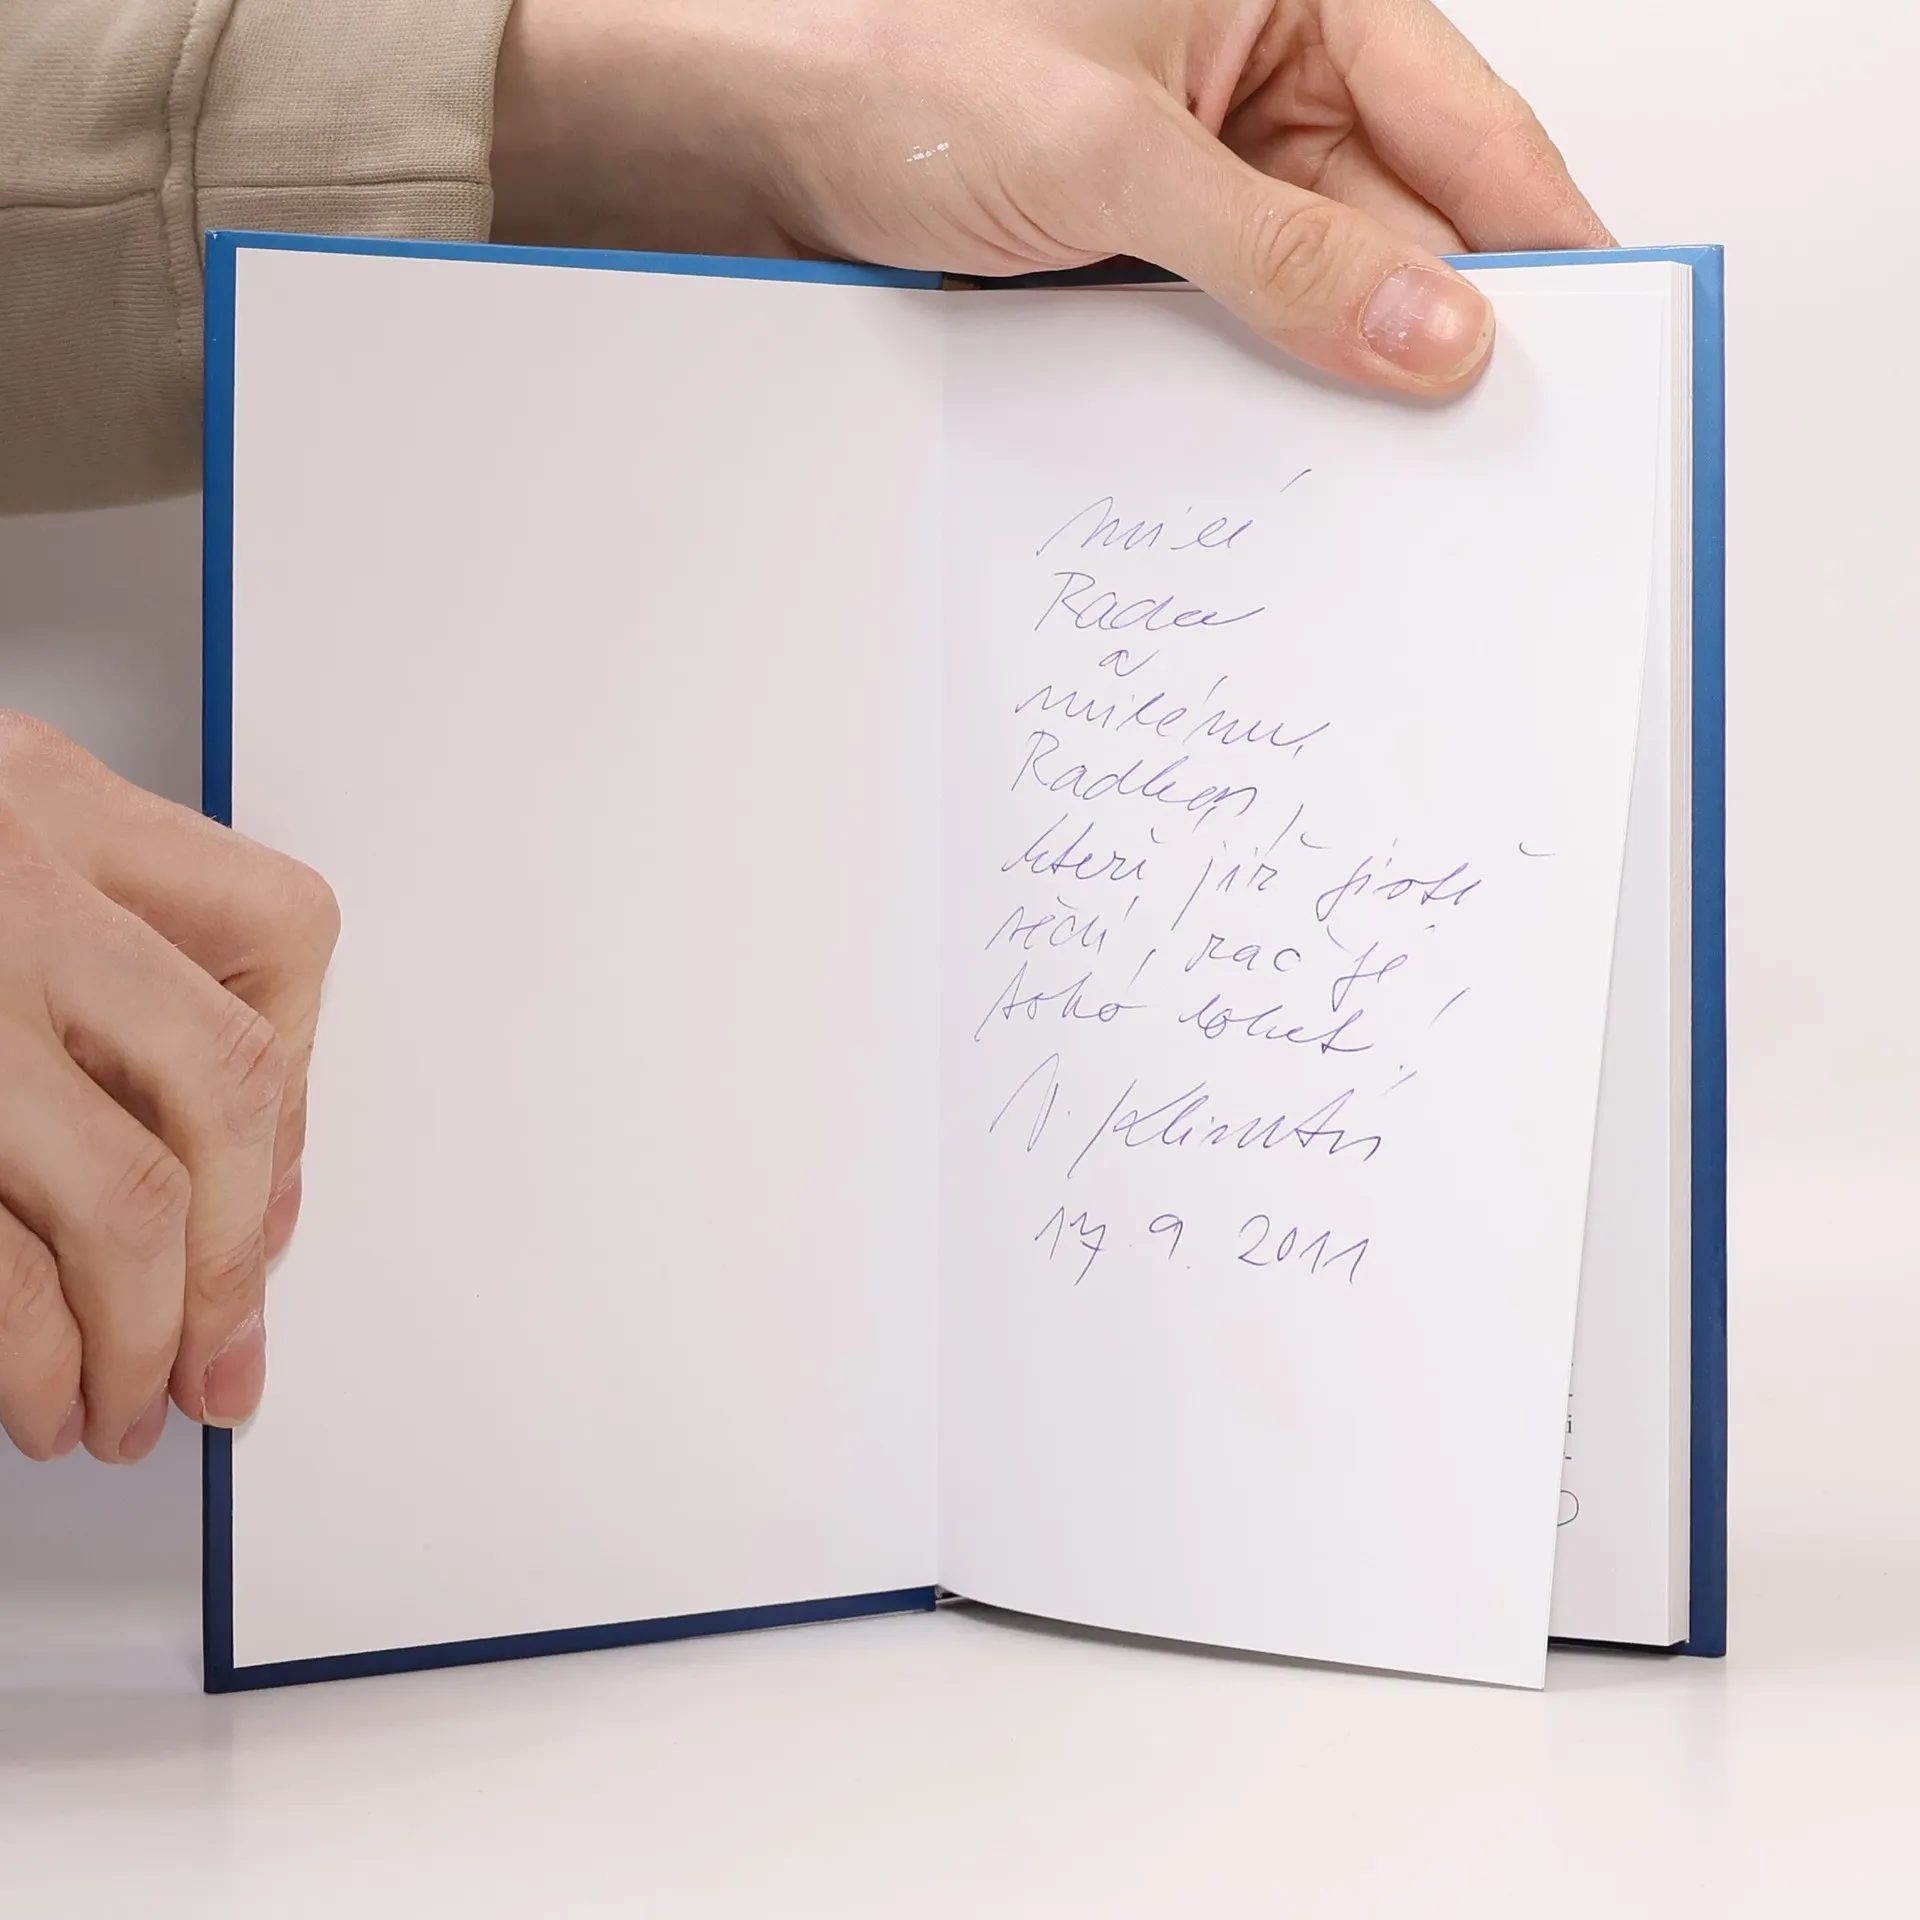 milé
Radce
a
milému
Radkovi,
kteří již jistě
vědí, zač je
toho loket!
V. Klimtová
17. 9. 2011
i